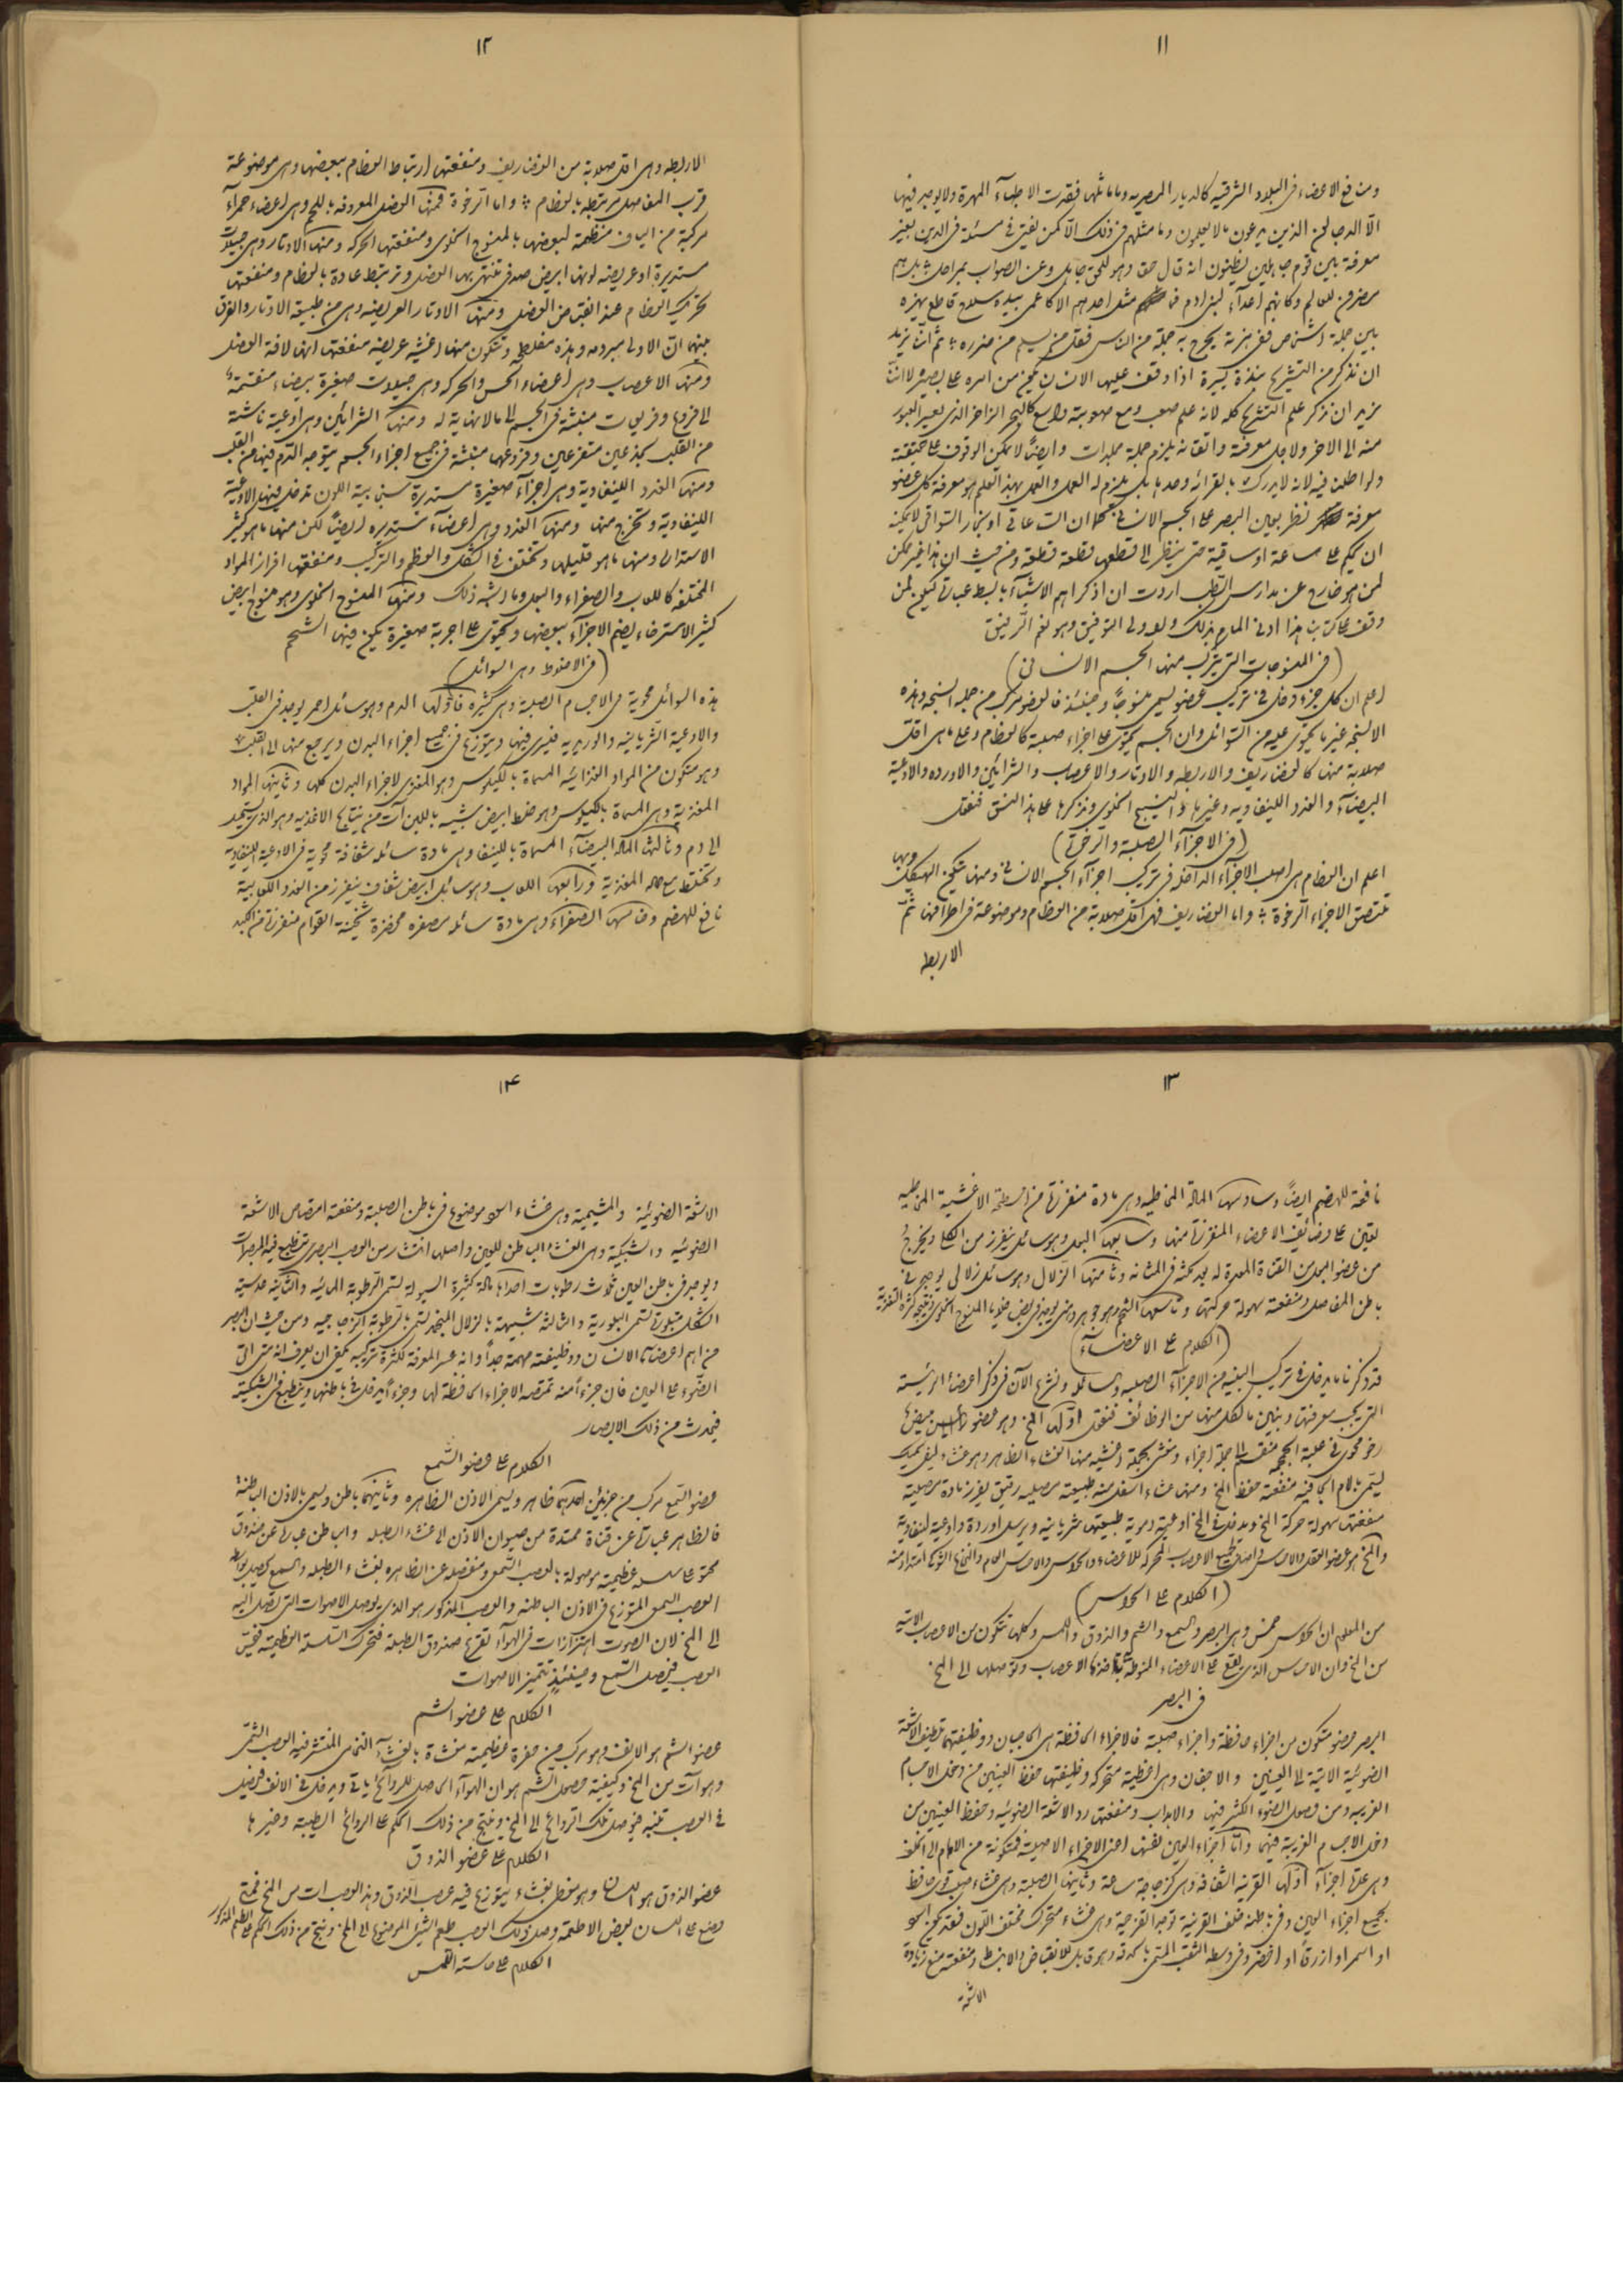 ١١
ومنافع الاعضاء فى البلاد الشرقيه كالديار المصريه وما ماثلها فقدت الاطبآء المهرة ولا يوجد فيها
الّا الدجالين الذين يدعون ما لا يعلمون وما مثلهم فى ذلك الّا كمن يفتى فى مسئلة فى الدين بغير
معرفة بين قوم جاهلين يظنون انه قال حق وهو للحق جاهل وعن الصواب بمراحل بل هم
مضرون للعالم وكانهم اعدآء لبنى ادم فما مثل احدهم الا كاعمى بيده سلاح قاطع يهزه
بين جملة اشخاص ففى هزته يجرح به جملة من الناس فقل من يسلم من ضرره ثم اننا نريد
ان نذكر من التشريح نبذة يسيرة اذا وقف عليها الانسان يكون من امره على بصيرة لا اننا
نريد ان نذكر علم التشريح كله لانه علم صعب ومع صعوبته واسع كالبحر الزاخر الذى يعسر العبور
منه الى الاخر ولاجل معرفته واتقانه يلزم جملة مجلدات وايضًا لا يمكن الوقوف على حقيقته
ولو اطلعن فيه لانه لا يدرك بالقرائه وحدها بل يلزم له العمل والعمل بهذا العلم هو معرفة كل عضو
معرفة نظر بعين البصر على الجسم الانسانى كما ان الساعاتى او نجار السواقى لا يمكنه
ان يحكم على ساعة او ساقية حتى ينظر الى قطعها قطعة قطعة ومن حيث ان هذا غير ممكن
لمن هو خارج عن مدارس الطب اردت ان اذكر اهم الاشيآء بابسط عبارة ليكون لمن
وقف على كتابى هذا ادنى المام بذلك والله ولى التوفيق وهو نعم الرفيق
(فى المنسوجات التى يتركب منها الجسم الانسانى)
اعلم ان كل جزء دخل فى تركيب عضو يسمى منسوجًا وحينئذ فالعضو مركب من جملة انسجه وهذه
الانسجه غير ما يحتوى عليه من السوائل وان الجسم يحتوى على اجزاء صلبة كالعظام وعلى ما هى اقل
صلابة منها كالغضاريف والاربطه والاوتار والاعصاب والشرائين والاورده والاوعية
البيضآء والغدد اللينفاويه وغيرها والنسيج الخلوى ونذكرها على هذا النسق فنقول
(فى الاجزآء الصلبة والرخوة)
اعلم ان العظام هى اصلب الاجزآء الداخله فى تركيب اجزآء الجسم الانسانى ومنها يتكون الهيكل وبها
تلتصق الاجزاء الرخوة واما الغضاريف فهى اقل صلابة من العظام وموضوعة فى اطرافها ثم
الاربطه
١٢
الاربطه وهى اقل صلابة من الغضاريف ومنفعتها ارتباط العظام ببعضها وهى موضوعة
قرب المفاصل مرتبطه بالعظام واما الرخوة فمنها العضل المعروفه باللحم وهى اعضاء حمرآء
مركبة من الياف منظمة لبعضها بالمنسوج الخلوى ومنفعتها الحركه ومنها الاوتار وهى حبيلات
مستديرة او عريضه لونها ابيض صدفى تنتهى بها العضل وترتبط عادة بالعظام ومنفعتها
تحريك العظام عند انقباض العضل ومنها الاوتار العريضه وهى من طبيعة الاوتار والفرق
بينها انّ الاولى مبرومه وهذه مفلطحة وتتكون منها اغشيه عريضه منفعتها انها لافة العضل
ومنها الاعصاب وهى اعضاء الحس والحركه وهى حبيلات صغيرة بيضاء منقسمة
الى فروع وفريعات منبثة فى الجسم الى ما لا نهاية له ومنها الشرائين وهى اوعية ناشئة
من القلب بجذعين متفرعين وفروعهما منبثة فى جميع اجزاء الجسم يتوجه الدم فيها من القلب
ومنها الغدد اللينفاوية وهى اجزآء صغيرة مستديرة سنجابية اللون تدخل فيها الاوعية
اللينفاوية وتخرج منها ومنها الغدد وهى اعضآء مستديره ايضًا لكن منها ما هو كثير
الاستدارة ومنها ما هو قليلها وتختلف فى الشكل والعظم والتركيب ومنفعتها افراز المواد
المختلفه كاللعاب والصفراء والبول وما اشبه ذلك ومنها المنسوج الخلوى وهو منسوج ابيض
كثير الاسترخاء يضم الاجزآء ببعضها ويحتوى على اجربة صغيرة يكون فيها الشحم
(فى الاخلاط وهى السوائل)
هذه السوائل محوية فى الاجسام الصلبة وهى كثيرة فاولها الدم وهو سائل احمر يوجد فى القلب
والاوعية الشريانيه والوريديه فيسرى فيها ويتوزع فى جميع اجزاء البدن ويرجع منها الى القلب
وهو متكون من المواد الغذائيه المسماة بالكيلوس وهو المغذى لاجزاء البدن كلها وثانيها المواد
المغذية وهى المسماة بالكيلوس وهو خلط ابيض شبيه باللبن آت من نتايج الاغذيه وهو الذى يستحيل
الى دم وثالثها المادة البيضآء المسماة باللينفا وهى مادة سائله شفافة محوية فى الاوعية اللينفاوية
وتختلط مع المادة المغذية ورابعها اللعاب وهو سائل ابيض شفاف ينفرز من الغدد اللعابية
نافع للهضم وخامسها الصفراء وهى مادة سائله مصفره مخضرة ثخينة القوام منفرزة من الكبد
١٣
نافعة للهضم ايضًا وسادسها المادة المخاطيه وهى مادة منفرزة من اسطحة الاغشية المخاطيه
تعين على وظائف الاعضاء المنفرزة منها وسابعها البول وهو سائل ينفرز من الكلى ويخرج
من عضو البول من القناة المعدة له بعد مكثه فى المثانه وثامنها الزلال وهو سائل زلالى يوجد فى
باطن المفاصل ومنفعته سهولة حركتها وتاسعها الشحم وهو جوهر دهنى يوجد فى بعض خلايا المنسوج الخلوى ونتيجه كثرة التغذية
(الكلام على الاعضآء)
قد ذكرنا ما يدخل فى تركيب البنيه من الاجزآء الصلبه والسائله ونشرع الآن فى ذكر اعضاء الرئيسة
التى يجب معرفتها ونبين ما لكل منها من الوظائف فنقول اولها المخ وهو عضو
رخو محوى فى علبة الجمجمه منقسم الى جملة اجزاء ومغشى بجملة اغشيه منها الغشاء الظاهر وهو غشاء ليفى سميك
يسمى بالام الجافيه منفعته حفظ المخ ومنها غشاء اسفل منه طبيعته مصليه رقيق يفرز مادة مصلية
منفعتها سهولة حركة المخ ويدخل فى المخ اوعية دموية طبيعتها شريانيه ويرسل اوردة واوعية لينفاوية
والمخ هو عضو العقل والاحساس واصل جميع الاعصاب المحركه للاعضاء والحواس والاحساس العام والنخاع الشوكى امتداد منه
(الكلام على الحواس)
من المعلوم ان الحواس خمس وهى البصر والسمع والشم والذوق واللمس وكلها تتكون من الاعصاب الاتية
من المخ وان الاحساس الذى يقع على الاعضاء المنوطة بها تاخذه الاعصاب وتوصلها الى المخ
فى البصر
البصر عضو متكون من اجزاء حافظة واجزاء صلبة فالاجزاء الحافظة هى الحاجبان ووظيفتهما تلطيف الاشعة
الضوئية الاتية الى العينين والاجفان وهى اغطية متحركه وظيفتها حفظ العينين من دخول الاجسام
الغريبه ومن وصول الضوء الكثير فيها والاهداب ومنفعتها رد الاشعة الضوئيه وحفظ العينين من
دخول الاجسام الغريبة فيهما وامّا اجزاء العين نفسها اعنى الاجزاء الاصلية فمتكونة من الامام الى الخلف
وهى على اجزآء اولها القرنيه الشفافه وهى كزجاجة ساعة وثانيها الصلبة وهى غشاء صلب قوى حافظ
لجميع اجزاء العين وفى باطنه خلف القرنية توجد القزحية وهى غشاء متحرك مختلف اللون فقد يكون اسود
او اسمر او ازرقا او اخضر وفى وسطه الثقب المسمى بالحدقه وهو قابل للانقباض والانبساط ومنفعته منع زيادة
الاشعة
١٤
الاشعة الضوئية والمشيمية وهى غشاء اسود موضوع فى باطن الصلبة ومنفعته امتصاص الاشعة
الضوئيه والشبكية وهى الغشاء الباطن للعين واصلها انتشار من العصب البصرى تنطبع فيه المبصرات
ويوجد فى باطن العين ثلاث رطوبات احداها مادة كثيرة السيولة تسمى الرطوبة المائيه والثانية عدسية
الشكل متبلورة تسمى البلورية والثالثة شبيهة بالزلال المنجمد تسمى بالرطوبة الزجاجيه ومن حيث ان البصر
من اهم اعضآء الانسان ووظيفته مهمة جدًا وانه عسر المعرفة لكثرة تركيبه يكفى ان يعرف انه متى اتى
الضوء على العين فان جزءًا منه تمتصه الاجزاء الحافظة لها وجزءًا يدخل فى باطنها وينطبع فى الشبكية
فيحدث من ذلك الابصار
الكلام على عضو السمع
عضو السمع مركب من جزئين احدهما ظاهر ويسمى الاذن الظاهره وثانيهما باطن ويسمى بالاذن الباطنة
فالظاهر عبارة عن قناة ممتدة من صيوان الاذن الى غشاء الطبله والباطن عبارة عن صندوق
محتو على سلسلة عظيمية موصولة بالعصب السمعى ومنفصلة عن الظاهره بغشاء الطبله والسمع يحصل بواسطة
العصب السمعى المتوزع فى الاذن الباطنه والعصب المذكور هو الذى يوصل الاصوات التى تصل اليه
الى المخ لان الصوت اهتزازات فى الهوآء تقرع صندوق الطبلة فتتحرك السلسلة العظيمية فيحس
العصب فيحصل السمع وحينئذٍ تتميز الاصوات
الكلام على عضو الشم
عضو الشم هو الانف وهو مركب من حفرة عظيمية مغشاة بالغشآء النخامى المنتشر فيه العصب الشمى
وهو آت من المخ وكيفية حصول الشم هو ان الهوآء الحامل للروائح ياتى ويدخل فى الانف فيحصل
فى العصب تنبه فيوصل تلك الروائح الى المخ وينتج من ذلك الحكم على الروائح الطيبة وغيرها
الكلام على عضو الذوق
عضو الذوق هو اللسان وهو مغطى بغشاء يتوزع فيه عصب الذوق وهذا العصب ات من المخ فمتى
وضع على اللسان بعض الاطعمة وصل ذلك العصب طعم الشئ الموضوع الى المخ وينتج من ذلك الحكم على الطعم المذكور
الكلام على حاسة اللمس